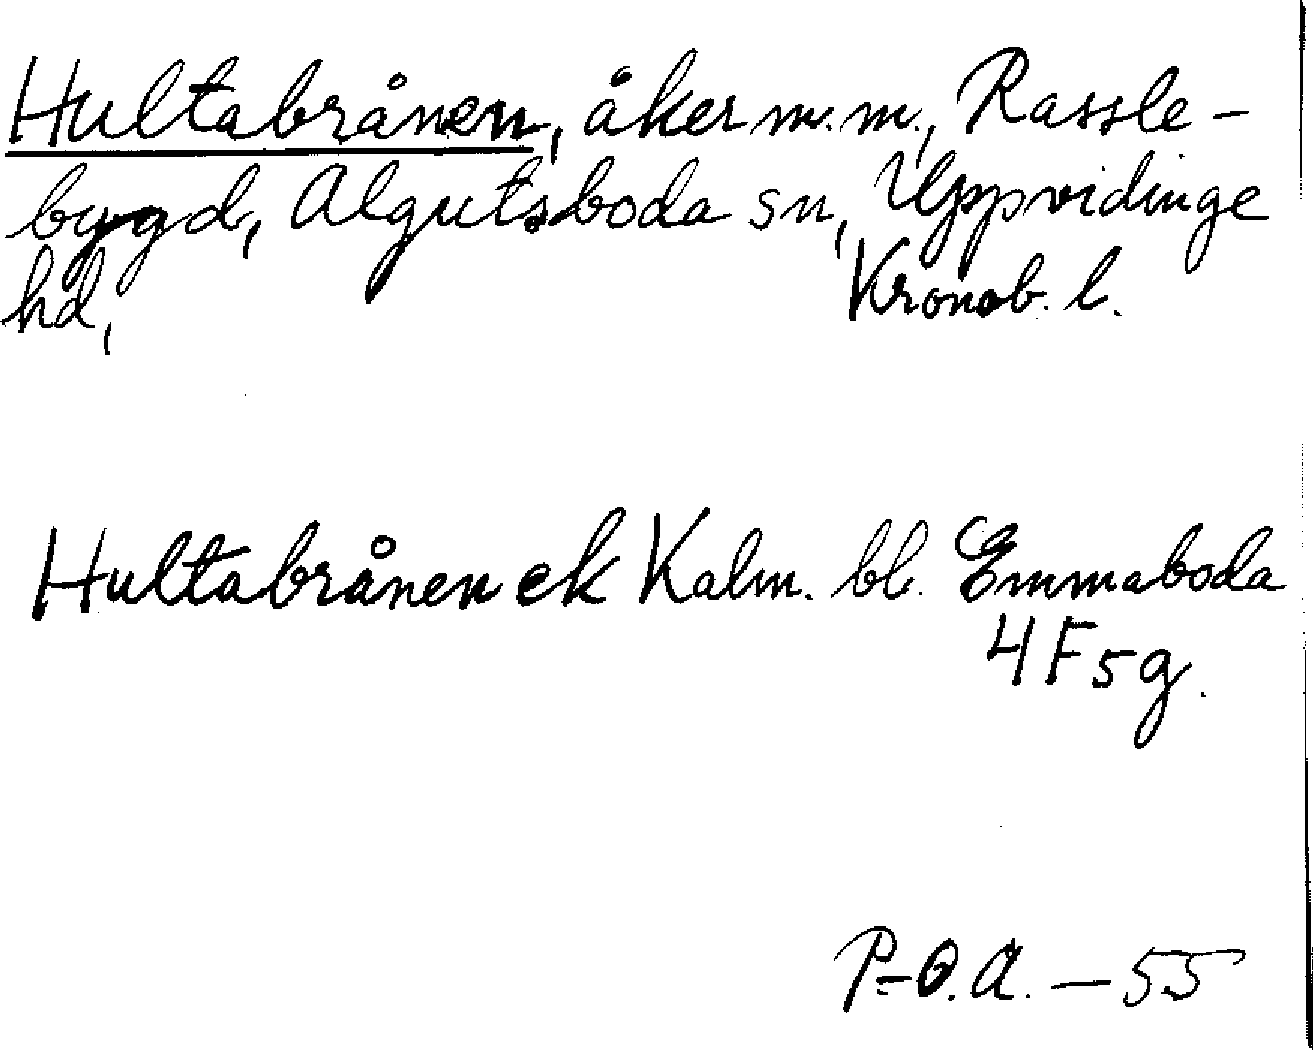 Hultabrånen, åker m.m., Rassle-
bygd, Algutsboda sn, Uppvidinge
hd, Kronob. l.
Hultabrånen ek Kalm. bl. Emmaboda
4F5g.
P-O.A. - 55